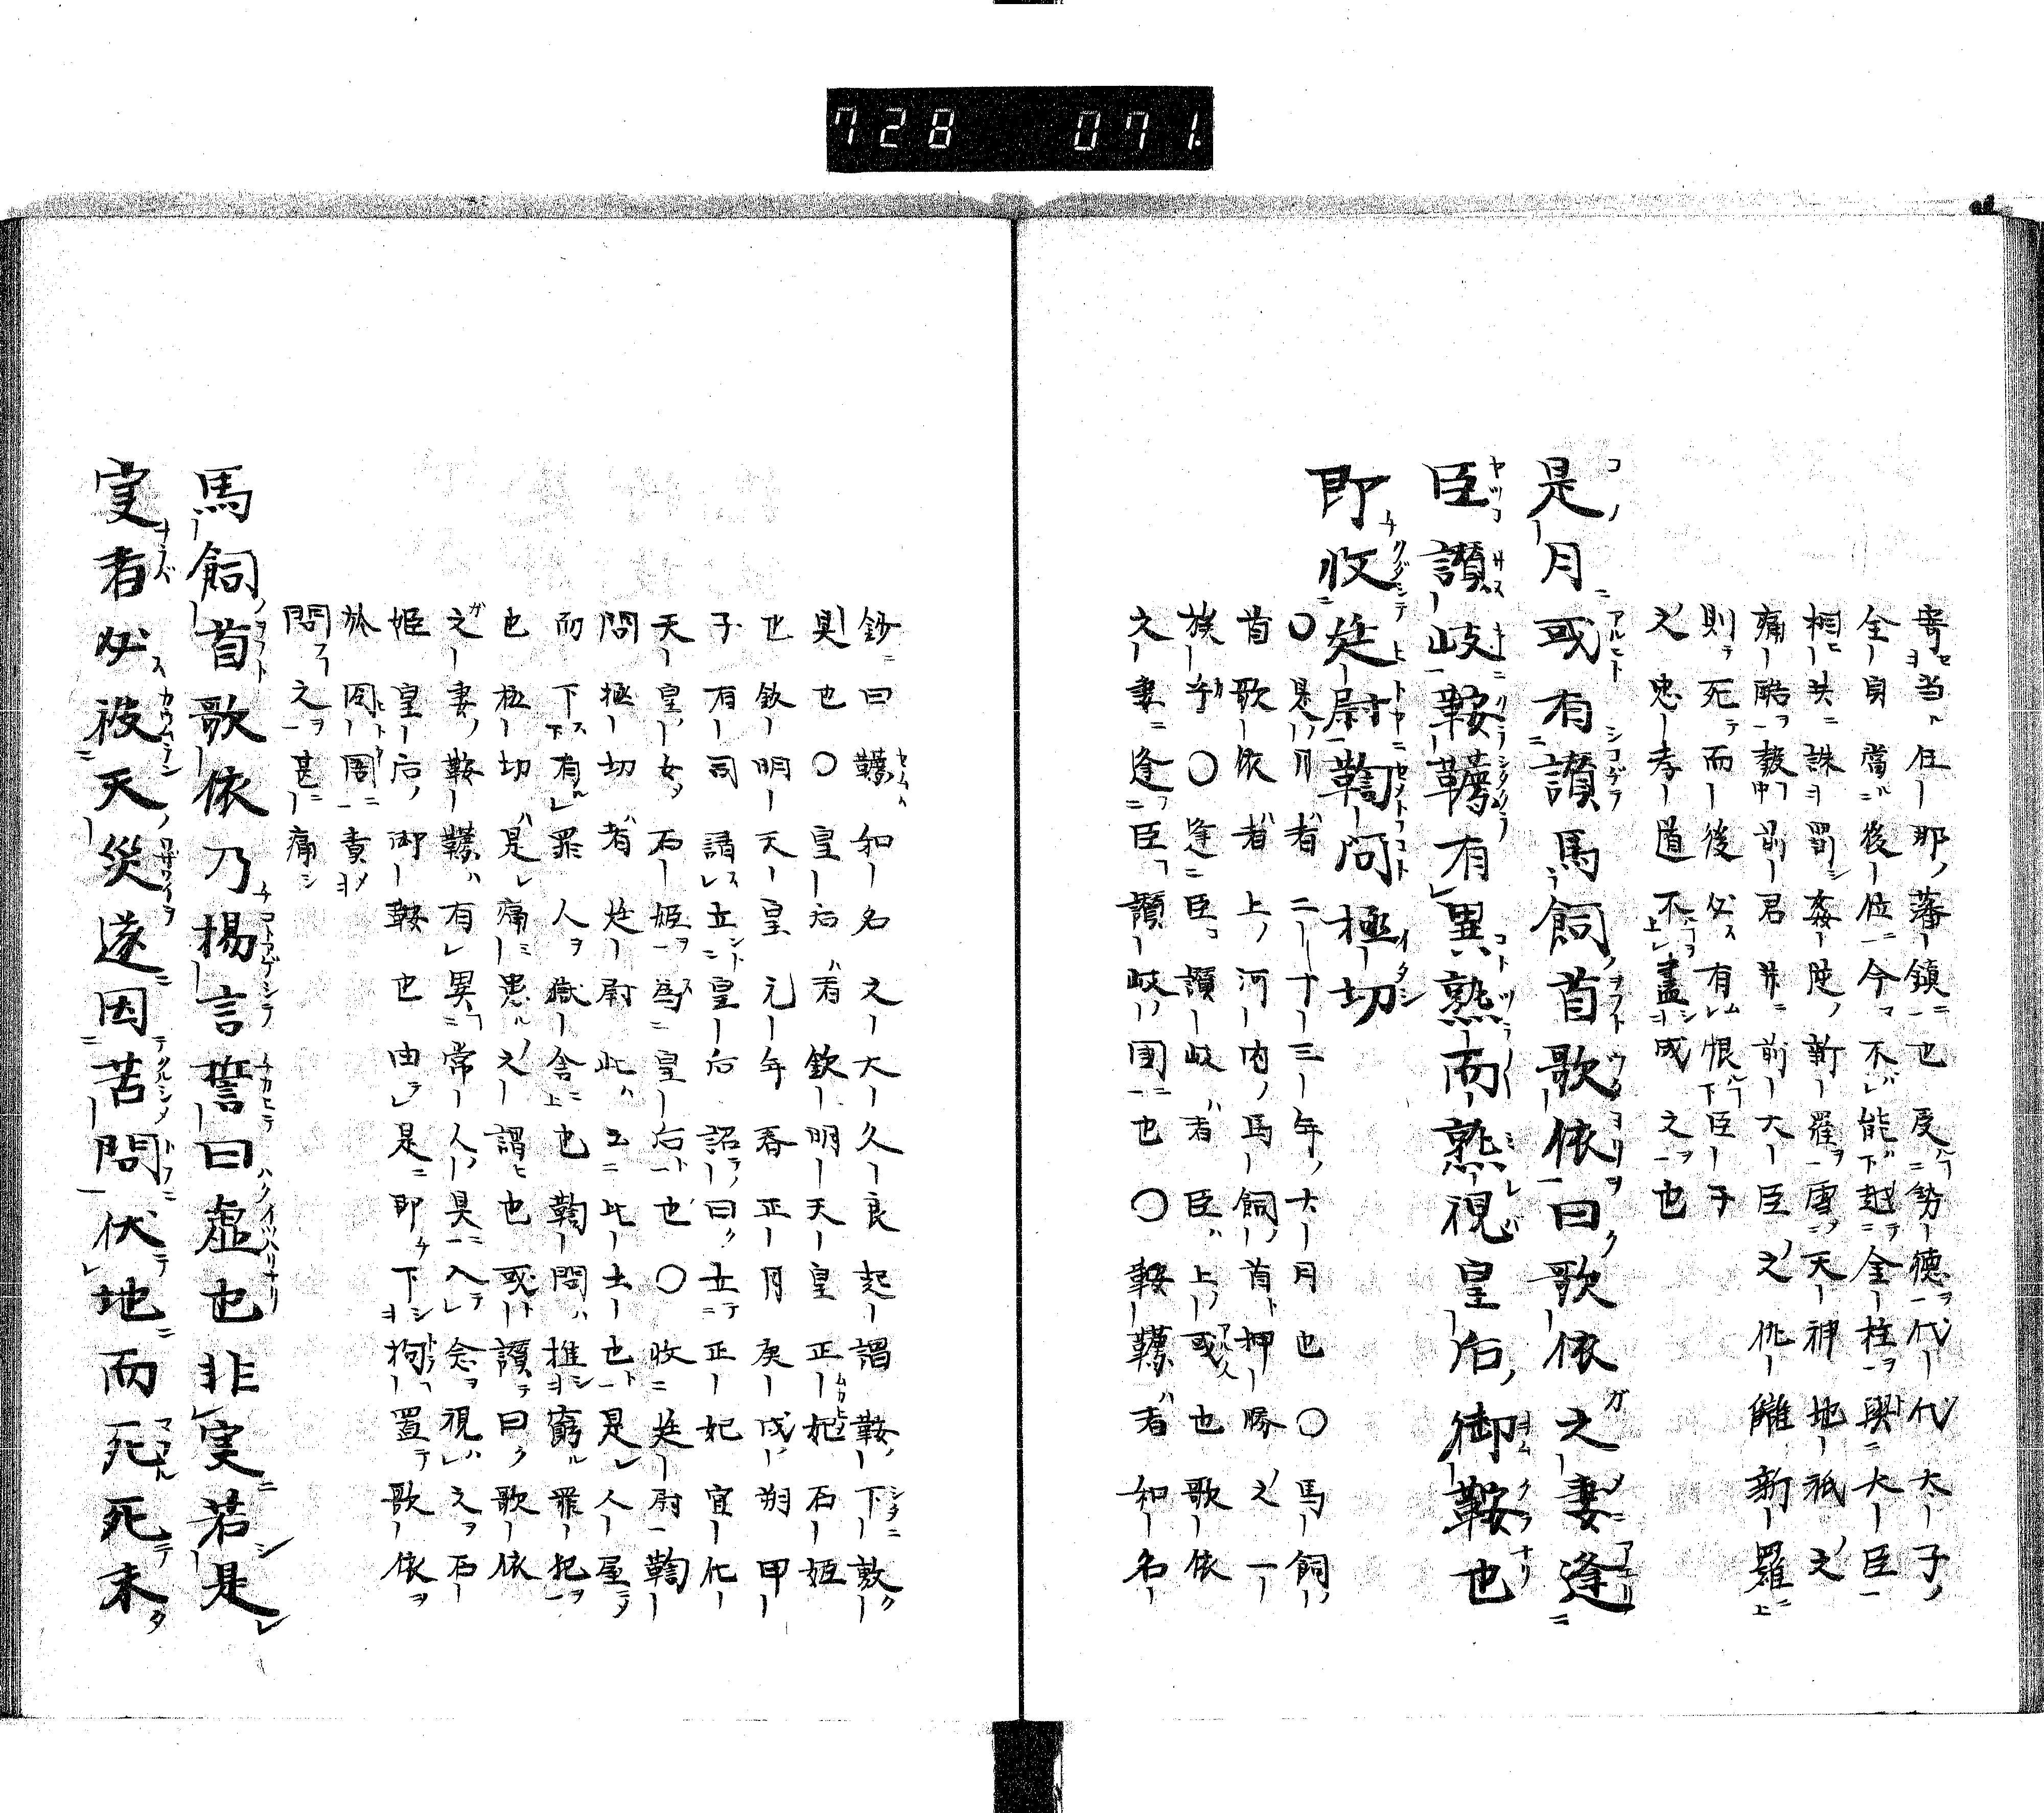 728 071.
寄当任那藩鎮也反勢徳代代大子
全身當後位今不能越全柱與大臣
相共誅罰姦逆新羅雪天神地祇之
痛酷毅前君并前大臣之仇雠新羅
則死而後必有恨臣子
之忠孝道不盡成之也
是月或有讃馬飼首歌依曰歌依之妻逢
臣讃岐鞍韉有異熟而熟視皇后御鞍也
即收廷尉鞫問極切
〇是月者二十三年六月也〇馬飼
首歌依者上河内馬飼首押勝之一
族乎〇逢臣讃岐者臣上或也歌依
之妻逢臣讃岐国也〇鞍韉者和名
鈔曰韉和名之大久良起謂鞍下敷
具也〇皇后者欽明天皇正妃石姫
也欽明天皇元年春正月庚戌朔甲
子有司請立皇后詔曰立正妃宣化
天皇女石姫為皇后也〇收廷尉鞫
問極切者廷尉此ニ比土也是人屋
而下有罪人獄舎也鞫問推窮罪犯
也極切是痛患之謂也或讃曰歌依
之妻鞍韉有異常人具入念視之石
姫皇后御鞍也由是即下拘置歌依
於囹圄責
問之甚痛
馬飼首歌依乃揚言誓曰虚也非実若是
実者必被天災遂因苦問伏地而死死未